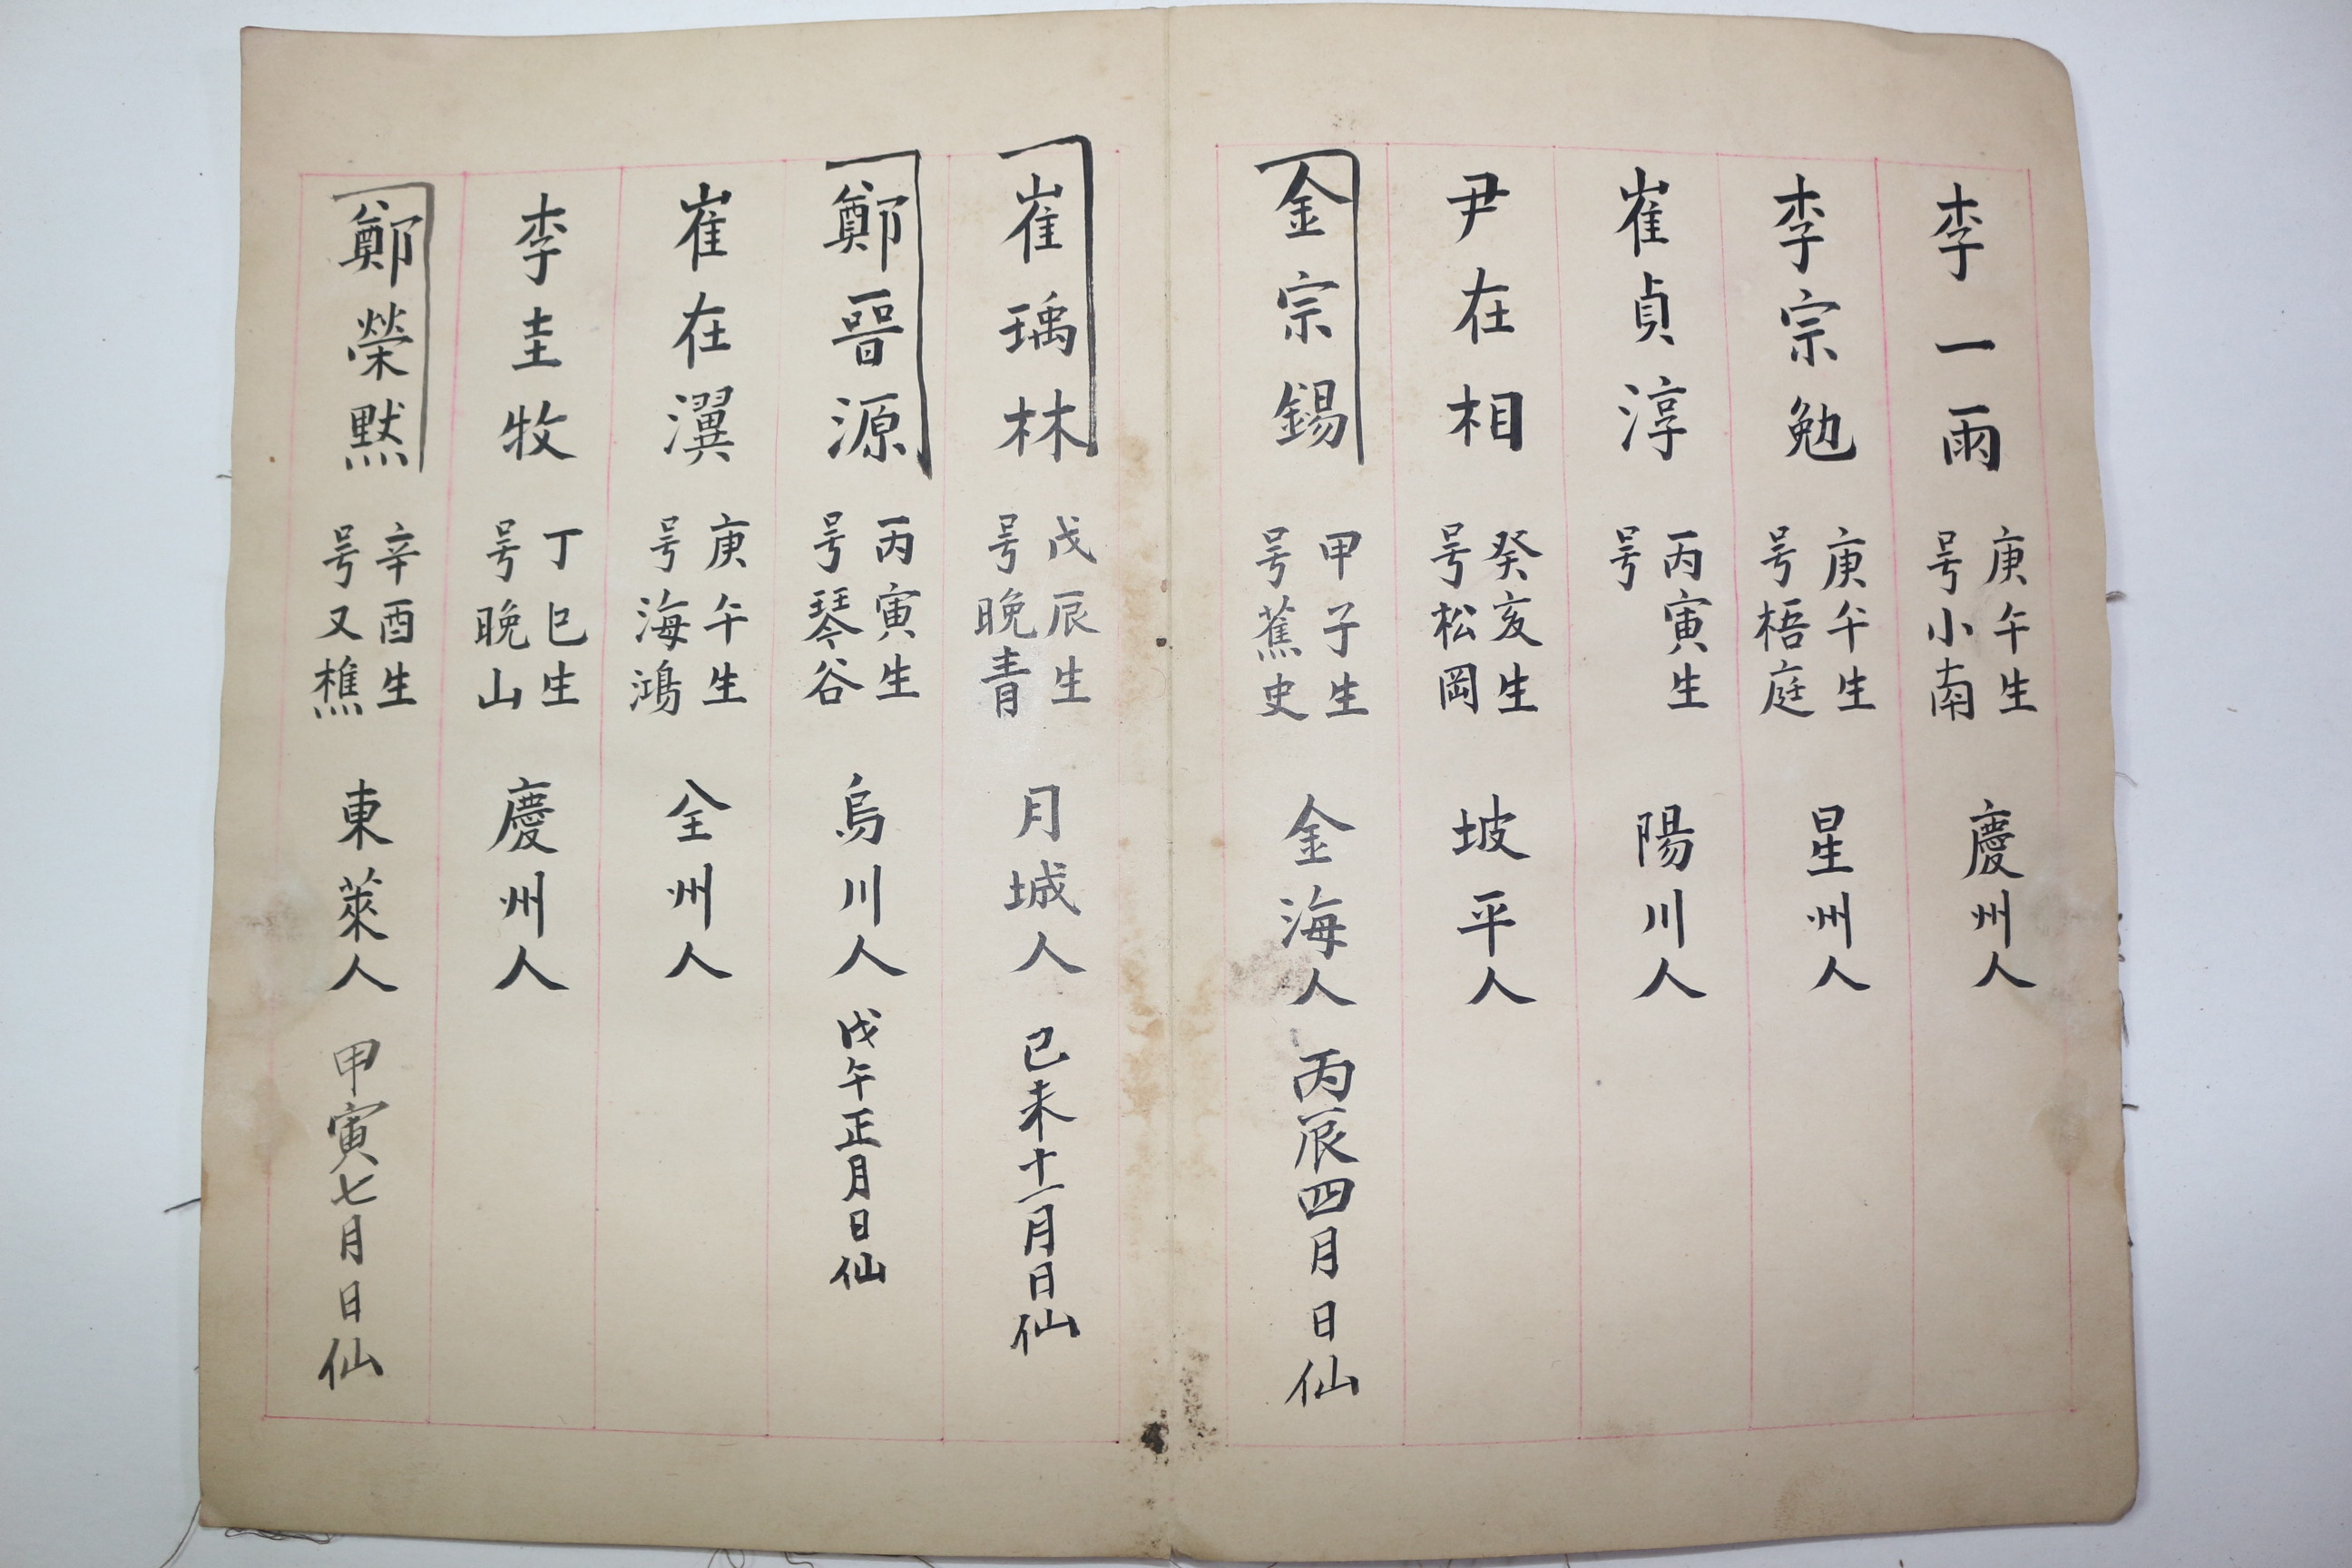 李一雨 庚午生 号小南 慶州人
李宗勉 庚午生 号梧庭 星州人
崔貞淳 丙寅生 号 陽川人
尹在相 癸亥生 号松岡 坡平人
金宗錫 甲子生 号蕉史 金海人 丙辰四月 日仙
崔瑀林 戊辰生 号晩青 月城人 己未十一月日仙
鄭晉源 丙寅生 号琴谷 烏川人 戊午正月日仙
崔在瀷 庚午生 号海鴻 全州人
李圭牧 丁巳生 号晩山 慶州人
鄭榮黙 辛酉生 号又樵 東萊人 甲寅七月 日仙